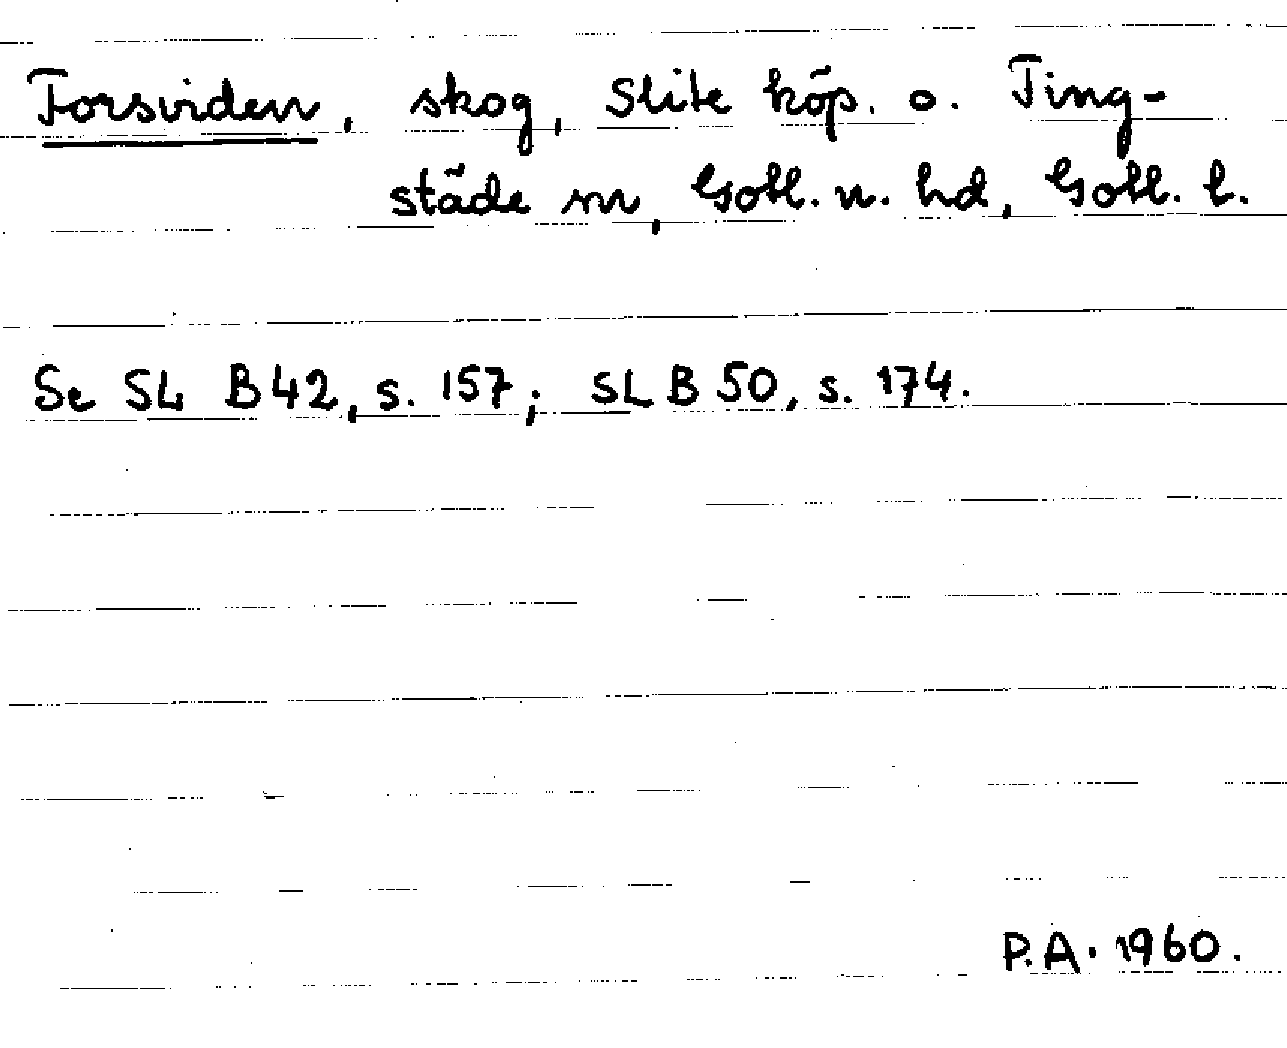 Forsviden, skog, Slite köp. o. Ting-
städe sn, Gotl. n. hd, Gotl. l.
Se SL B 42, s. 157; SL B 50, s. 174.
P.A. 1960.